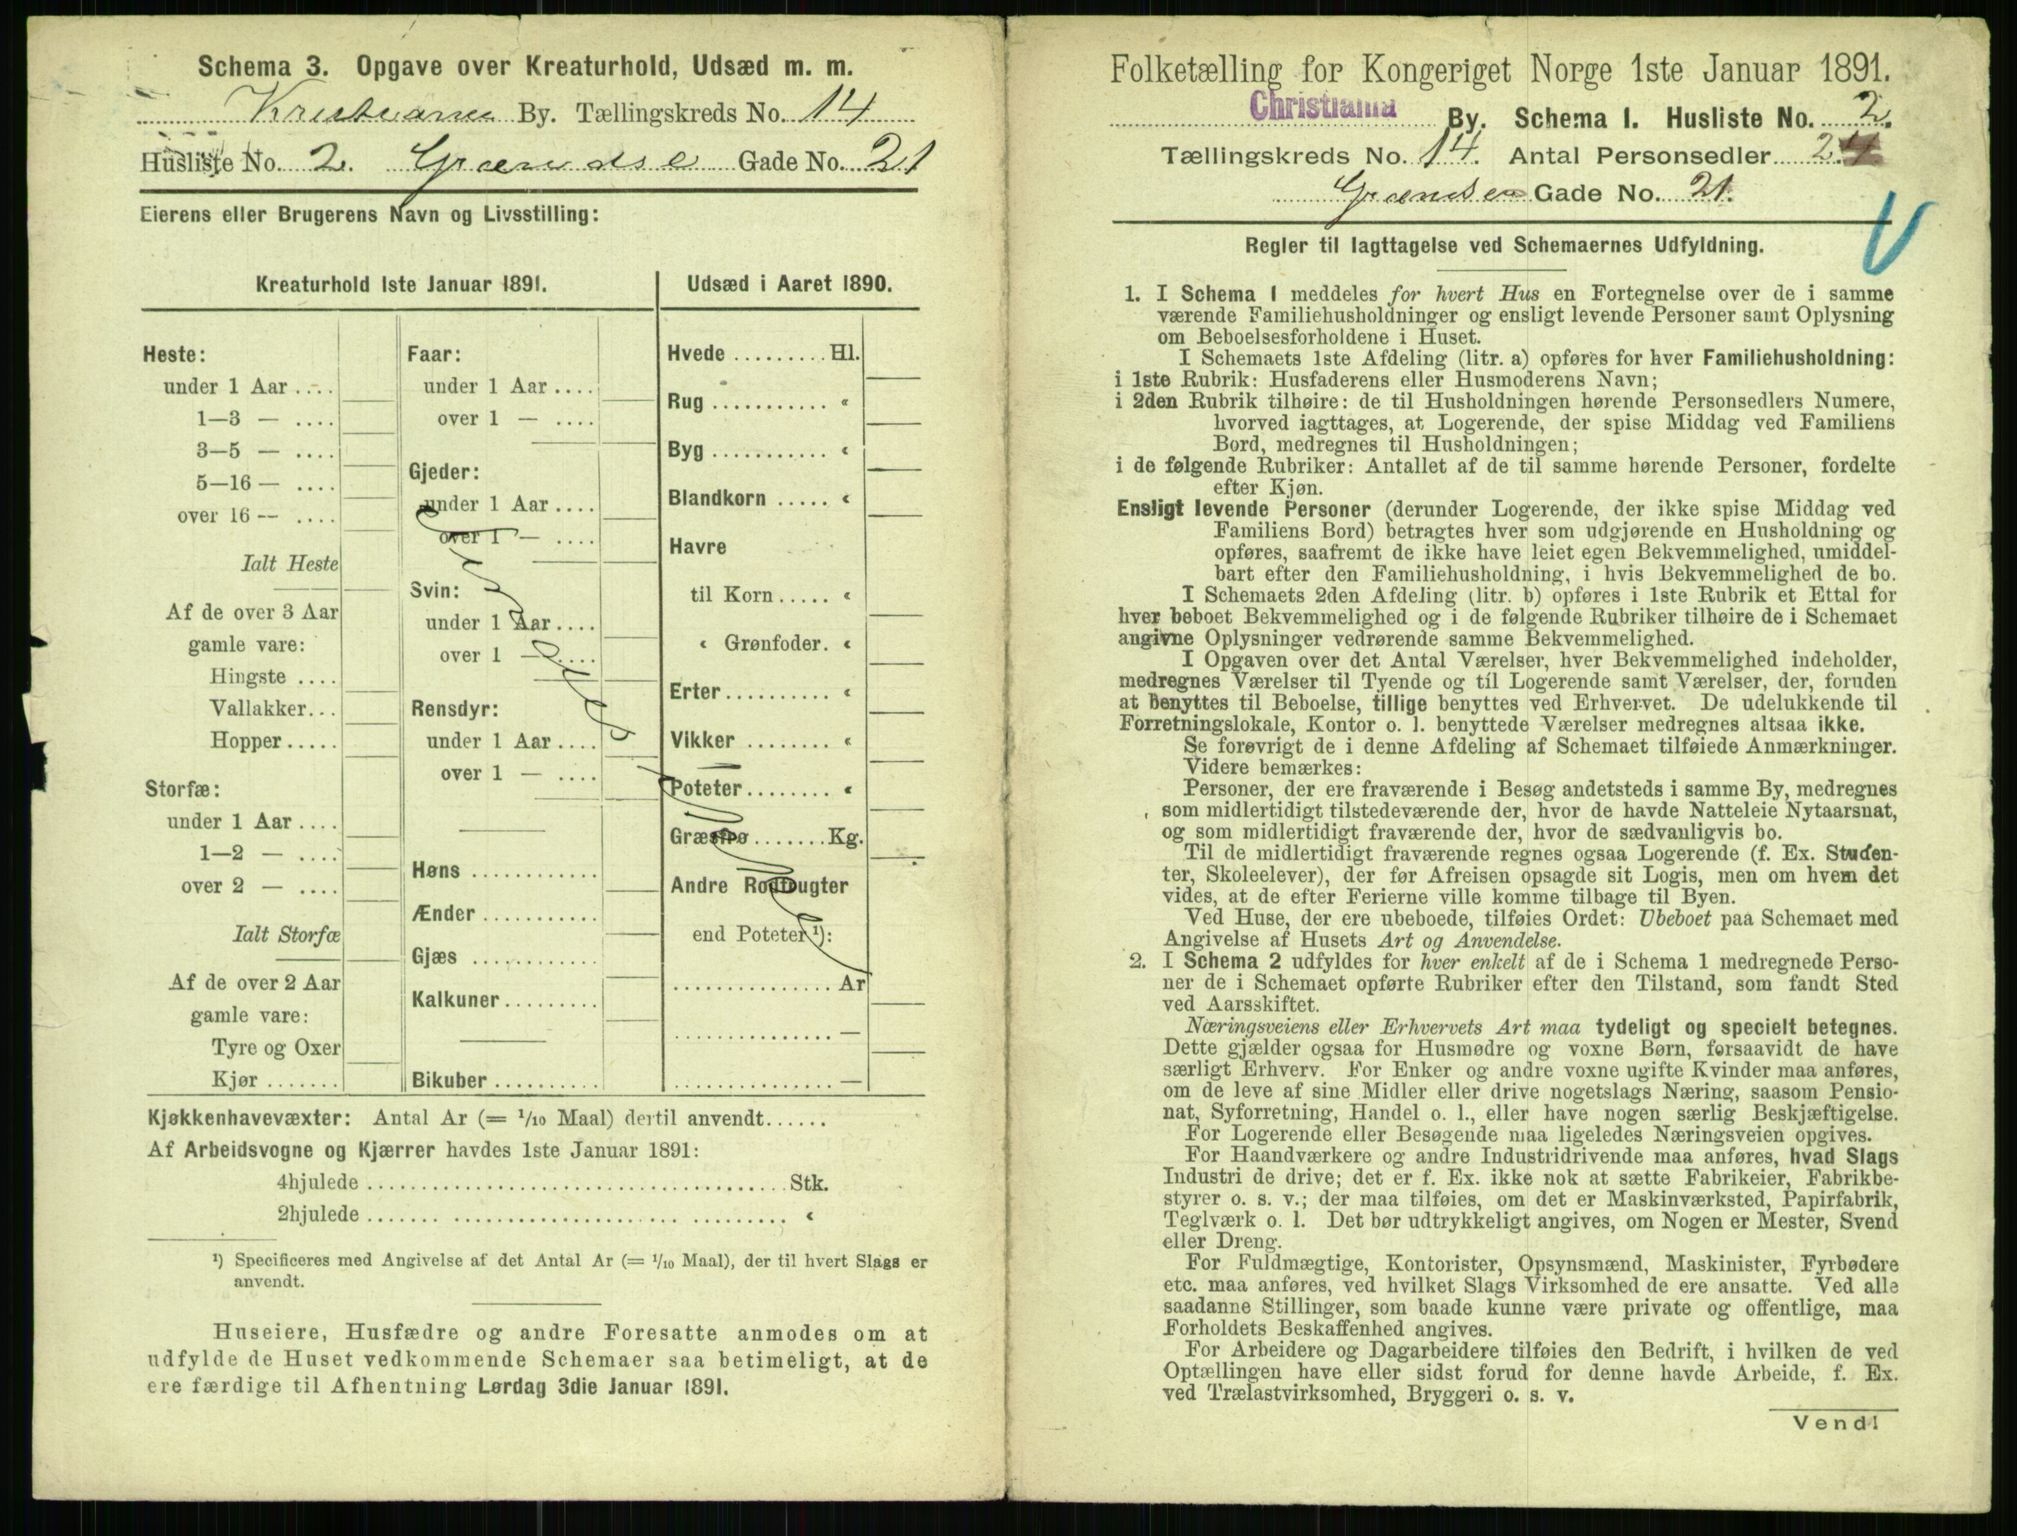 Schema 3. Opgave over Kreaturhold, Udsæd m. m.
Kristiania By. Tællingskreds No. 14
Husliste No. 2. Grændse Gade No. 21
Eierens eller Brugerens Navn og Livsstilling:
Kreaturhold 1ste Januar 1891.
Heste:
under 1 Aar ....
1—3 — ....
3—5 — ....
5—16 — ....
over 16 — ....
Ialt Heste
Af de over 3 Aar
gamle vare:
Hingste ....
Vallakker...
Hopper.....
Storfæ:
under 1 Aar ....
1—2 — ....
over 2 — ....
Ialt Storfæ
Af de over 2 Aar
gamle vare:
Tyre og Oxer
Kjør .......
Faar:
under 1 Aar ....
over 1 — ....
Gjeder:
under 1 Aar ....
over 1 — ....
Svin:
under 1 Aar ....
over 1 — ....
Rensdyr:
under 1 Aar ....
over 1 — ....
Høns ............
Ænder ...........
Gjæs ............
Kalkuner.........
Bikuber ..........
Udsæd i Aaret 1890.
Hvede ......... Hl.
Rug ........... «
Byg ........... «
Blandkorn ..... «
Havre
til Korn ..... «
« Grønfoder. «
Erter......... «
Vikker ........ «
Poteter........ «
Græsfrø ....... Kg.
Andre Rodfrugter
end Poteter ¹):
............... Ar
............... —
............... —
Kjøkkenhavevæxter: Antal Ar (= 1/10 Maal) dertil anvendt......
Af Arbeidsvogne og Kjærrer havdes 1ste Januar 1891:
4hjulede ........................................ Stk.
2hjulede ........................................ «
¹) Specificeres med Angivelse af det Antal Ar (= 1/10 Maal), der til hvert Slags er
anvendt.
Huseiere, Husfædre og andre Foresatte anmodes om at
udfylde de Huset vedkommende Schemaer saa betimeligt, at de
ere færdige til Afhentning Lørdag 3die Januar 1891.
Folketælling for Kongeriget Norge 1ste Januar 1891.
Christiania By. Schema 1. Husliste No. 2.
Tællingskreds No. 14. Antal Personsedler 2
Grændsen Gade No. 21.
Regler til Iagttagelse ved Schemaernes Udfyldning.
1. I Schema 1 meddeles for hvert Hus en Fortegnelse over de i samme
værende Familiehusholdninger og ensligt levende Personer samt Oplysning
om Beboelsesforholdene i Huset.
I Schemaets 1ste Afdeling (litr. a) opføres for hver Familiehusholdning:
i 1ste Rubrik: Husfaderens eller Husmoderens Navn;
i 2den Rubrik tilhøire: de til Husholdningen hørende Personsedlers Numere,
hvorved iagttages, at Logerende, der spise Middag ved Familiens
Bord, medregnes til Husholdningen;
i de følgende Rubriker: Antallet af de til samme hørende Personer, fordelte
efter Kjøn.
Ensligt levende Personer (derunder Logerende, der ikke spise Middag ved
Familiens Bord) betragtes hver som udgjørende en Husholdning og
opføres, saafremt de ikke have leiet egen Bekvemmelighed, umiddel-
bart efter den Familiehusholdning, i hvis Bekvemmelighed de bo.
I Schemaets 2den Afdeling (litr. b) opføres i 1ste Rubrik et Ettal for
hver beboet Bekvemmelighed og i de følgende Rubriker tilhøire de i Schemaet
angivne Oplysninger vedrørende samme Bekvemmelighed.
I Opgaven over det Antal Værelser, hver Bekvemmelighed indeholder,
medregnes Værelser til Tyende og til Logerende samt Værelser, der, foruden
at benyttes til Beboelse, tillige benyttes ved Erhvervet. De udelukkende til
Forretningslokale, Kontor o. l. benyttede Værelser medregnes altsaa ikke.
Se forøvrigt de i denne Afdeling af Schemaet tilføiede Anmærkninger.
Videre bemærkes:
Personer, der ere fraværende i Besøg andetsteds i samme By, medregnes
som midlertidigt tilstedeværende der, hvor de havde Natteleie Nytaarsnat,
og som midlertidigt fraværende der, hvor de sædvanligvis bo.
Til de midlertidigt fraværende regnes ogsaa Logerende (f. Ex. Studen-
ter, Skoleelever), der før Afreisen opsagde sit Logis, men om hvem det
vides, at de efter Ferierne ville komme tilbage til Byen.
Ved Huse, der ere ubeboede, tilføies Ordet: Ubeboet paa Schemaet med
Angivelse af Husets Art og Anvendelse.
2. I Schema 2 udfyldes for hver enkelt af de i Schema 1 medregnede Perso-
ner de i Schemaet opførte Rubriker efter den Tilstand, som fandt Sted
ved Aarsskiftet.
Næringsveiens eller Erhvervets Art maa tydeligt og specielt betegnes.
Dette gjælder ogsaa for Husmødre og voxne Børn, forsaavidt de have
særligt Erhverv. For Enker og andre voxne ugifte Kvinder maa anføres,
om de leve af sine Midler eller drive nogetslags Næring, saasom Pensio-
nat, Syforretning, Handel o. l., eller have nogen særlig Beskjæftigelse.
For Logerende eller Besøgende maa ligeledes Næringsveien opgives.
For Haandværkere og andre Industridrivende maa anføres, hvad Slags
Industri de drive; det er f. Ex. ikke nok at sætte Fabrikeier, Fabrikbe-
styrer o. s. v.; der maa tilføies, om det er Maskinværksted, Papirfabrik,
Teglværk o. l. Det bør udtrykkeligt angives, om Nogen er Mester, Svend
eller Dreng.
For Fuldmægtige, Kontorister, Opsynsmænd, Maskinister, Fyrbødere
etc. maa anføres, ved hvilket Slags Virksomhed de ere ansatte. Ved alle
saadanne Stillinger, som baade kunne være private og offentlige, maa
Forholdets Beskaffenhed angives.
For Arbeidere og Dagarbeidere tilføies den Bedrift, i hvilken de ved
Optællingen have eller sidst forud for denne havde Arbeide, f. Ex.
ved Trælastvirksomhed, Bryggeri o. s. v.
Vend!